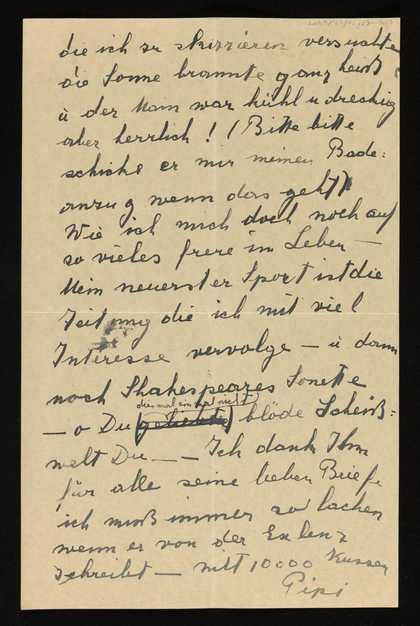 die ich zu skizzieren versuchte
die Sonne brannte ganz heiß
u der Main war kühl u dreckig
aber herrlich! (Bitte bitte
schicke er mir meinen Bade=
anzug wenn das geht))
Wie ich mich doch noch auf
so vieles freue im Leben —
Mein neuester Sport ist die
Zeitung die ich mit viel
Interesse vervolge — u dann
noch Shakespeares Sonette
diesmal einmal nicht
— o Du (geliebte) blöde Scheiß=
welt Du — — Ich dank Ihm
für alle seine lieben Briefe
ich muß immer so lachen
wenn er von der Exlenz
schreibt — mit 10000 Küssen
Pipi